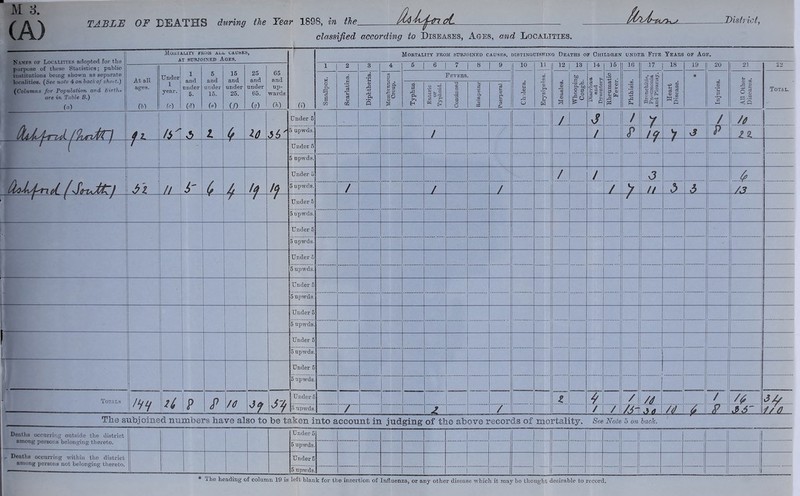 M 3.
(A)
TABLE OF DEATHS during the Year 1898, in the Ashford Urban District,
classified according to Diseases, Ages, and Localities.
Names of Localities adopted for the purpose of these Statistics; public institutions being shown as separate localities. (See note 4 on back of sheet.)
(Columns for Population and Births are in Table B.)
(a)
Mortality from all causes, at subjoined Ages.
At all ages. (b)
Under 1 year. (c)
1 and under 5. (d)
5 and under 15. (e)
15 and under 25. (f)
25 and under 65. (g)
65 and upwards (h)
(i)
Mortality from subjoined causes, distinguishing Deaths of Children under Five Years of Age.
1 2 3 4 5 6 7 8 9 10 11 12 13 14 15 16 17 18 19 20 21 22
Smallpox.
Scarlatina.
Diphtheria.
Membranous Croup.
Fevers.
Typhus
Enteric or Typhoid.
Continued
Relapsing
Puerperal
Cholera.
Erysipelas.
Measles.
Whooping Cough.
Diarrhœa and Dysentery
Rheumatic Fever.
Phthisis.
Bronchitis, Pneumonia and Pleurisy
Heart Disease.
*
Injuries.
All Other Diseases.
Total
Ashford (North) 92 15 3 2 4 20 35
Under 5 1 3 1 7 1 10
5 upwds. 1 1 8 19 7 3 8 22
Under 5
5 upwds.
Ashford (South) 52 11 5 6 4 19 19
Under 5 1 1 3 6
5 upwds. 1 1 1 1 7 11 3 3 13
Under 5
5 upwds.
Under 5
5 upwds.
Under 5
5 upwds.
Under 5
5 upwds.
Under 5
5 upwds.
Under 5
5 upwds.
Under 5
5 upwds.
Totals 144 26 8 8 10 39 54
Under 5 2 4 1 10 1 16 34
5 upwds. 1 2 1 1 1 15 30 10 6 8 35 110
The subjoined numbers have also to be taken into account in judging of the above records of mortality. See Note 5 on back.
Deaths occurring outside the district among persons belonging thereto.
Under 5
5 upwds.
Deaths occurring within the district among persons not belonging thereto.
Under 5
5 upwds.
* The heading of column 19 is left blank for the insertion of Influenza, or any other disease which it may be thought desirable to record.